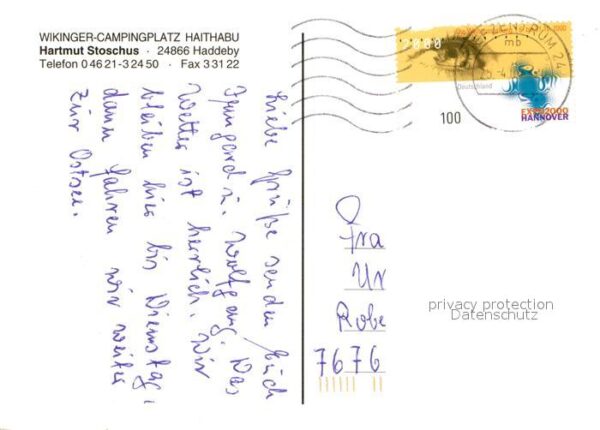 WIKINGER-CAMPINGPLATZ HAITHABU
Hartmut Stoschus · 24866 Haddeby
Telefon 0 46 21-3 24 50 · Fax 3 31 22
Liebe Grüße senden Euch
Irmgard u. Wolfgang. Das
Wetter ist herrlich. Wir
bleiben hier bis Dienstag,
dann fahren wir weiter
zur Ostsee.
2000
mb
RUM 24
Deutschland
EXPO2000
HANNOVER
100
Fra
Ur
Robe
7676
privacy protection
Datenschutz